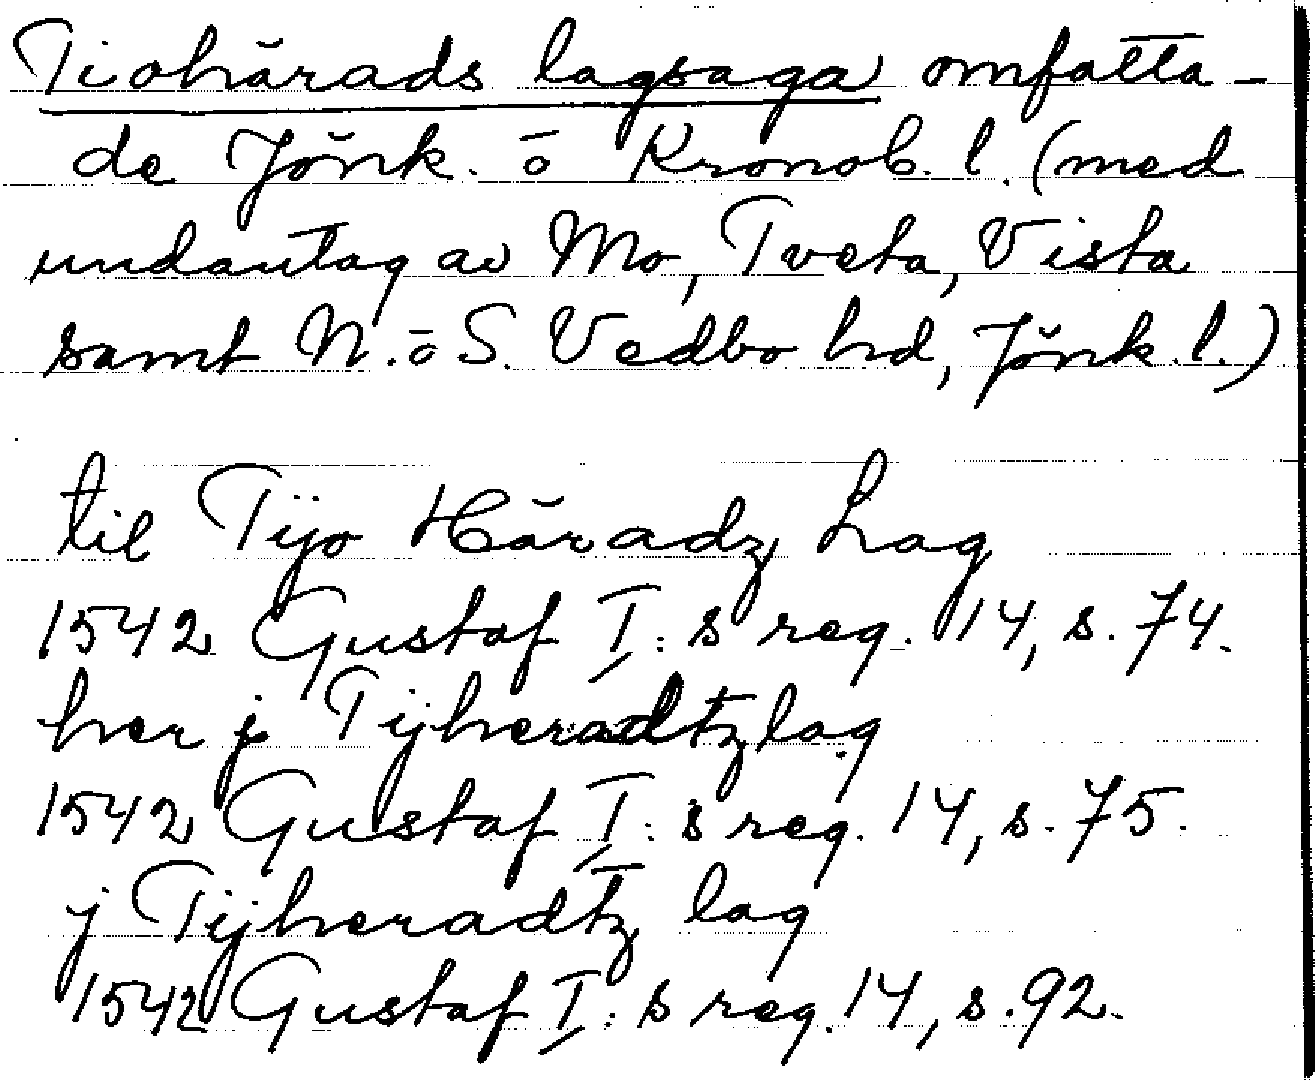 Tiohärads lagsaga omfatta-
de Jönk. o Kronob. l. (med
undantag av Mo, Tveta, Vista
samt N. o S. Vedbo hd, Jönk. l.)
til Tijo Häradz Lag
1542 Gustaf I:s reg. 14, s. 74.
her j Tijheradtz lag
1542 Gustaf I:s reg. 14, s. 75.
j Tijheradtz lag
1542 Gustaf I:s reg. 14, s. 92.